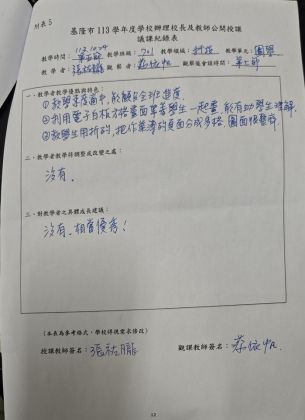 附表 5
基隆市 113 學年度學校辦理校長及教師公開授課
議課紀錄表
教學時間：113.10.24 第五節 教學班級：701 教學領域：科技 教學單元：圖學
教學者：張祐朧 觀察者：蔡依帆 觀察後會談時間：第七節
一、教學者教學優點與特色：
①教學末段適中，能顧好全班進度
②利用電子白板方格畫面帶著學生一起畫，能有助學生理解
③教學生用折的，把作業簿的頁面分成多格，圖面很整齊
二、教學者教學待調整或改變之處：
沒有。
三、對教學者之具體成長建議：
沒有，相當優秀！
(本表為參考格式，學校得視需求修改)
授課教師簽名：張祐朧 觀課教師簽名：蔡依帆